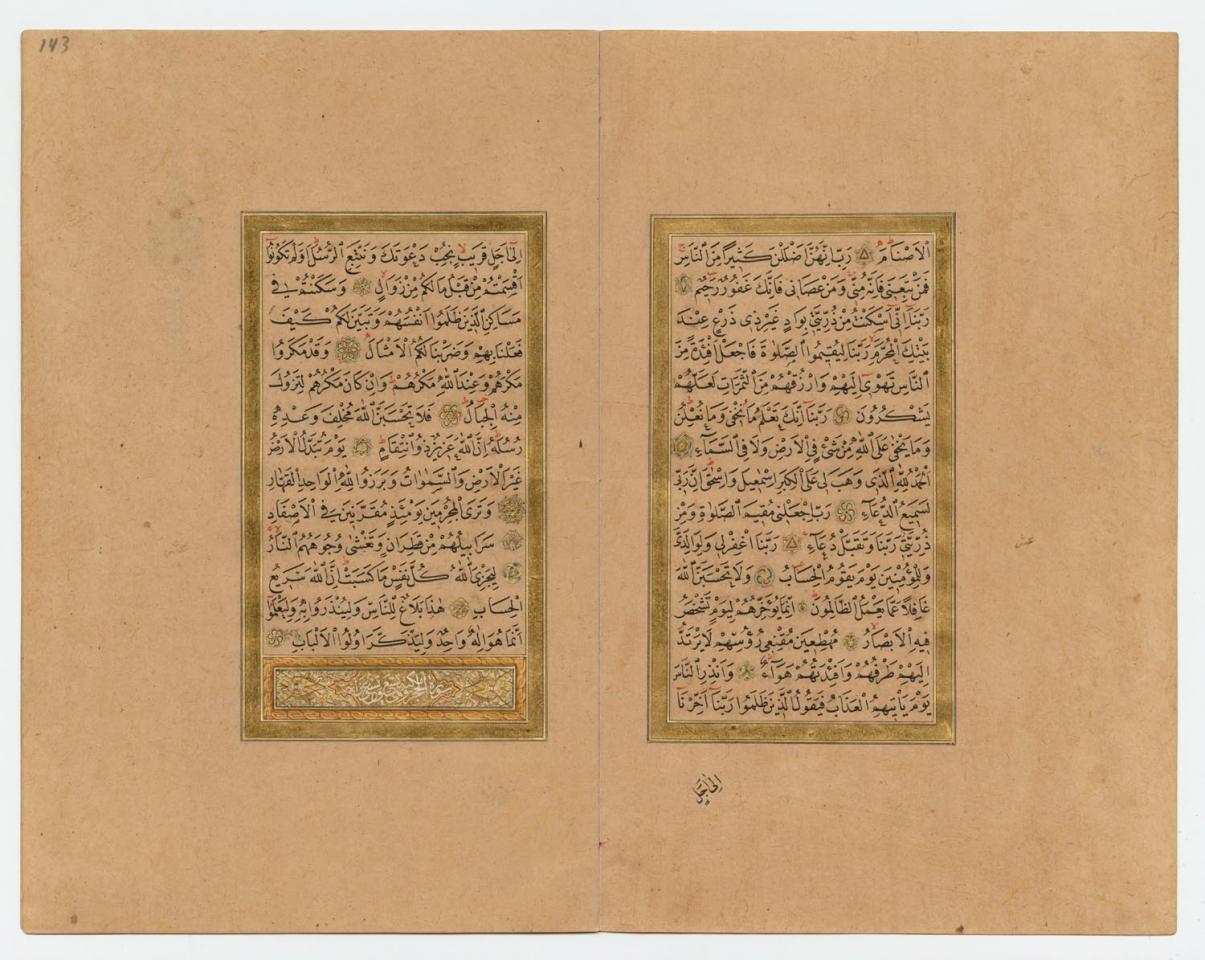 الاصنام رب انهن اضللن كثيرا من الناس
فمن تبعنى فانه منى ومن عصانى فانك غفور رحيم
ربنا انى اسكنت من ذريتى بواد غير ذى ذرع عند
بيتك المحرم ربنا ليقيموا الصلوة فاجعل افئدة من
الناس تهوى اليهم وارزقهم من الثمرات لعلهم
يشكرون ربنا انك تعلم ما نخفى وما نعلن
وما يخفى على الله من شئ فى الارض ولا فى السماء
الحمد لله الذى وهب لى على الكبر اسمعيل واسحق ان ربى
لسميع الدعاء رب اجعلنى مقيم الصلوة ومن
ذريتى ربنا وتقبل دعاء ربنا اغفر لى ولوالدى
وللمؤمنين يوم يقوم الحساب ولا تحسبن الله
غافلا عما يعمل الظالمون انما يؤخرهم ليوم تشخص
فيه الابصار مهطعين مقنعى رؤسهم لا يرتد
اليهم طرفهم وافئدتهم هواء وانذر الناس
يوم ياتيهم العذاب فيقول الذين ظلموا ربنا اخرنا
الى اجل
الى اجل قريب نجب دعوتك ونتبع الرسل اولم تكونوا
اقسمتم من قبل ما لكم من زوال وسكنتم فى
مساكن الذين ظلموا انفسهم وتبين لكم كيف
فعلنا بهم وضربنا لكم الامثال وقد مكروا
مكرهم وعند الله مكرهم وان كان مكرهم لتزول
منه الجبال فلا تحسبن الله مخلف وعده
رسله ان الله عزيز ذو انتقام يوم تبدل الارض
غير الارض والسموات وبرزوا لله الواحد القهار
وترى المجرمين يومئذ مقرنين فى الاصفاد
سرابيلهم من قطران وتغشى وجوههم النار
ليجزى الله كل نفس ما كسبت ان الله سريع
الحساب هذا بلاغ للناس ولينذروا به وليعلموا
انما هو اله واحد وليذكر اولوا الالباب
143